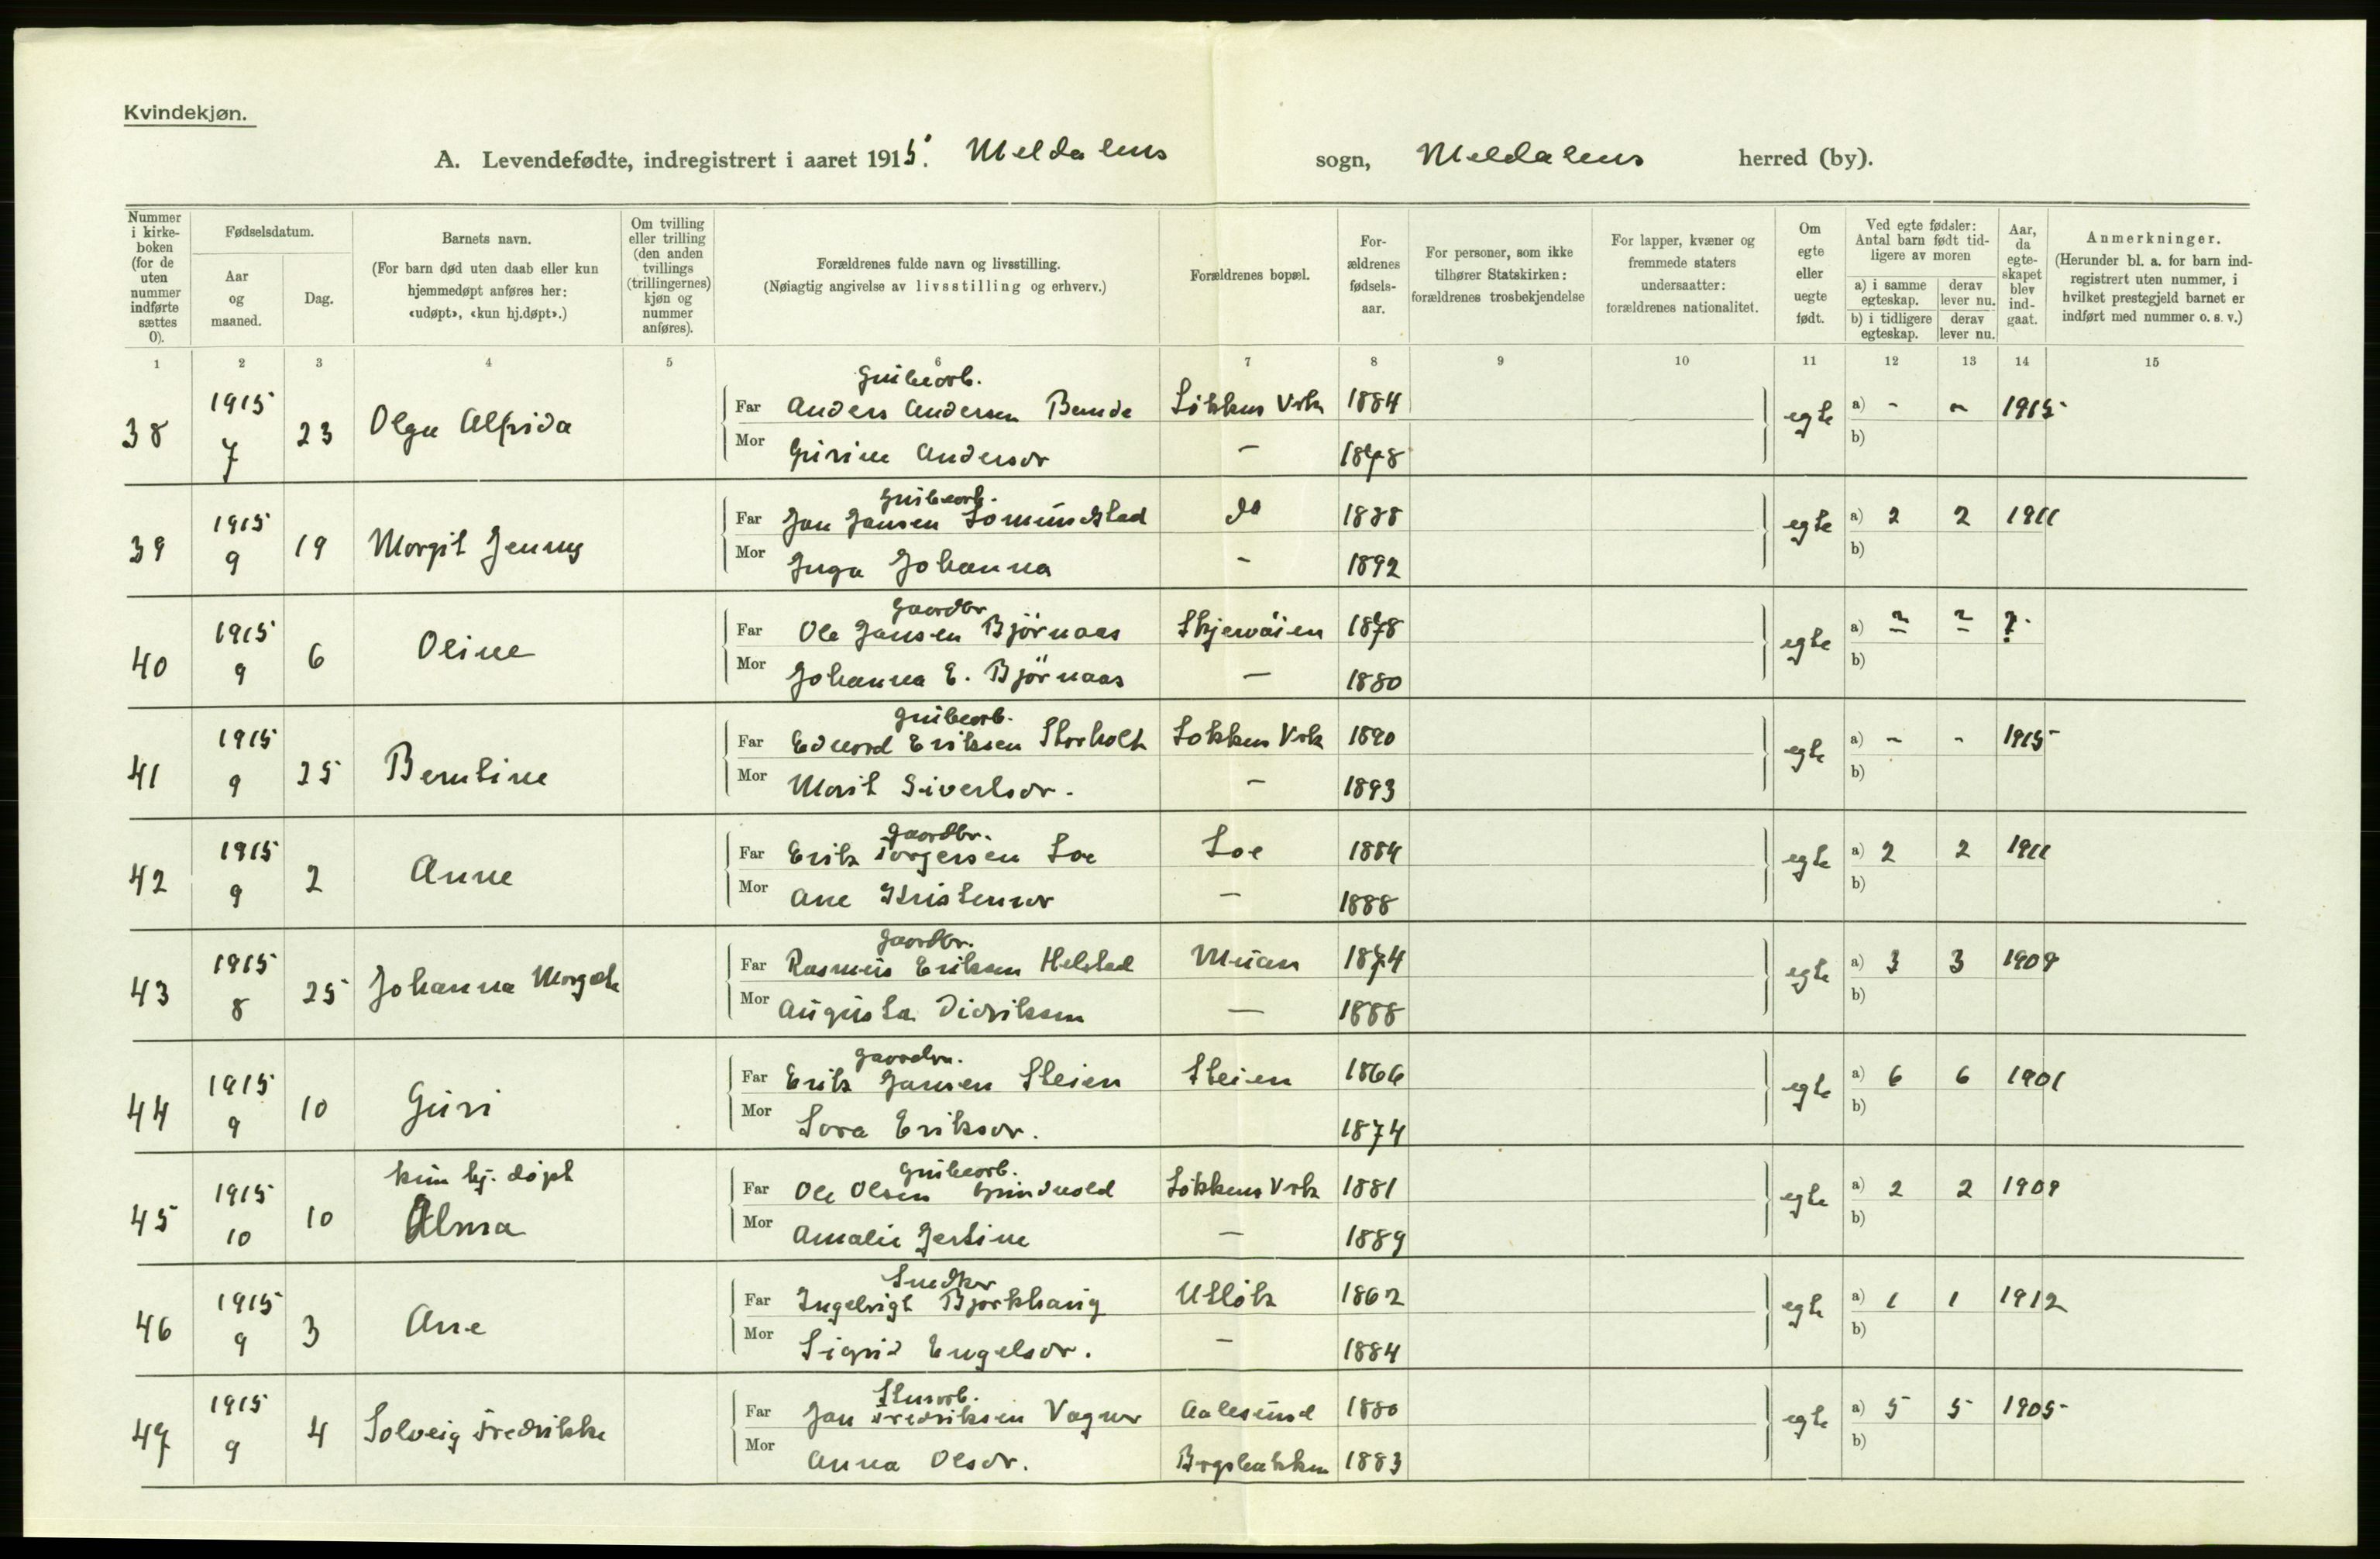 Kvindekjøn.
A. Levendefødte, indregistrert i aaret 1915. Meldalens sogn, Meldalens herred (by).
Nummer i kirke-boken (for de uten nummer indførte sættes 0).
Fødselsdatum.
Aar og maaned.
Dag.
Barnets navn.
(For barn død uten daab eller kun hjemmedøpt anføres her: «udøpt», «kun hj.døpt».)
Om tvilling eller trilling (den anden tvillings (trillingernes) kjøn og nummer anføres).
Forældrenes fulde navn og livsstilling.
(Nøiagtig angivelse av livsstilling og erhverv.)
Forældrenes bopæl.
For-ældrenes fødsels-aar.
For personer, som ikke tilhører Statskirken: forældrenes trosbekjendelse
For lapper, kvæner og fremmede staters undersaatter: forældrenes nationalitet.
Om egte eller uegte født.
Ved egte fødsler: Antal barn født tid-ligere av moren
a) i samme egteskap.
derav lever nu.
b) i tidligere egteskap.
derav lever nu.
Aar, da egte-skapet blev ind-gaat.
Anmerkninger.
(Herunder bl. a. for barn ind-registrert uten nummer, i hvilket prestegjeld barnet er indført med nummer o. s. v.)
1 2 3 4 5 6 7 8 9 10 11 12 13 14 15
Grubearb.
38 1915 7 23 Olga Alfrida Far Anders Andersen Løkkens Vrk 1884 egte a) - - 1915
Mor Gurine Andersdr - 1878 b)
Grubearb.
39 1915 9 19 Margit Jenny Far Jon Jonsen do 1888 egte a) 2 2 1911
Mor Inga Johanna - 1892 b)
Gaardbr
40 1915 9 6 Oline Far Ole Jonsen Björnaas 1878 egte a) ? ? ?
Mor Johanna E. Björnaas - 1880 b)
Grubearb.
41 1915 9 25 Berntine Far Edvard Eriksen Storholt Løkkens Vrk 1890 egte a) - - 1915
Mor Marit Sivertsdr. - 1893 b)
Gaardbr.
42 1915 9 2 Anne Far Erik Torgersen Loe Loe 1884 egte a) 2 2 1911
Mor Ane - 1888 b)
Gaardbr.
43 1915 8 25 Johanna Far Rasmus Eriksen Helstad Muan 1874 egte a) 3 3 1909
Mor Augusta Didriksen - 1888 b)
Gaardbr.
44 1915 9 10 Guri Far Erik Jonsen Steien Steien 1866 egte a) 6 6 1901
Mor Sara Eriksdr. 1874 b)
kun hj. døpt Grubearb.
45 1915 10 10 Alma Far Ole Olsen Grindvold Løkkens Vrk 1881 egte a) 2 2 1909
Mor Amalie Jertine - 1889 b)
Snedker
46 1915 9 3 Ane Far Ingebrigt Bjørkhaug 1862 egte a) 1 1 1912
Mor Sigrid Engelsdr. - 1884 b)
47 1915 9 4 Solveig Fredrikke Far Jon Fredriksen Vagner Aalesund 1880 egte a) 5 5 1905
Mor Anna Olsdr. 1883 b)